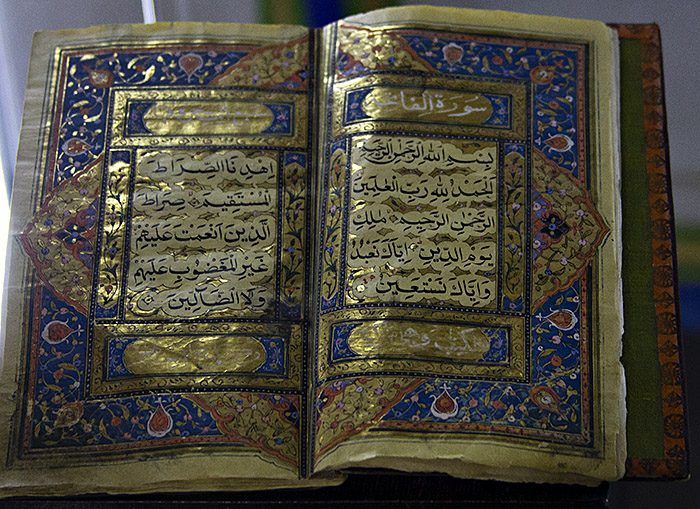 سورة الفاتحة
بِسْمِ اللهِ الرَّحْمٰنِ الرَّحِيْمِ
اَلْحَمْدُ لِلّٰهِ رَبِّ الْعٰلَمِيْنَ
الرَّحْمٰنِ الرَّحِيْمِ مٰلِكِ
يَوْمِ الدِّيْنِ اِيَّاكَ نَعْبُدُ
وَاِيَّاكَ نَسْتَعِيْنُ
اِهْدِنَا الصِّرَاطَ
الْمُسْتَقِيْمَ صِرَاطَ
الَّذِيْنَ اَنْعَمْتَ عَلَيْهِمْ
غَيْرِ الْمَغْضُوْبِ عَلَيْهِمْ
وَلَا الضَّالِّيْنَ